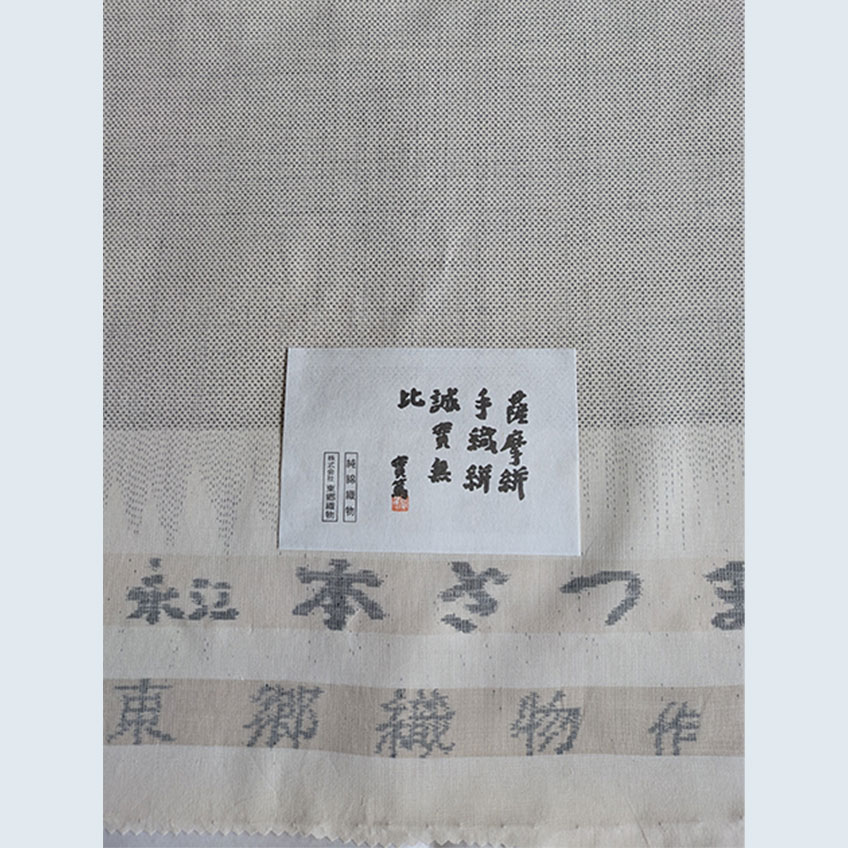 薩摩絣
手織絣
誠實無
比
實篤
純綿織物
株式会社 東郷織物
永江 本さつま
東郷織物作